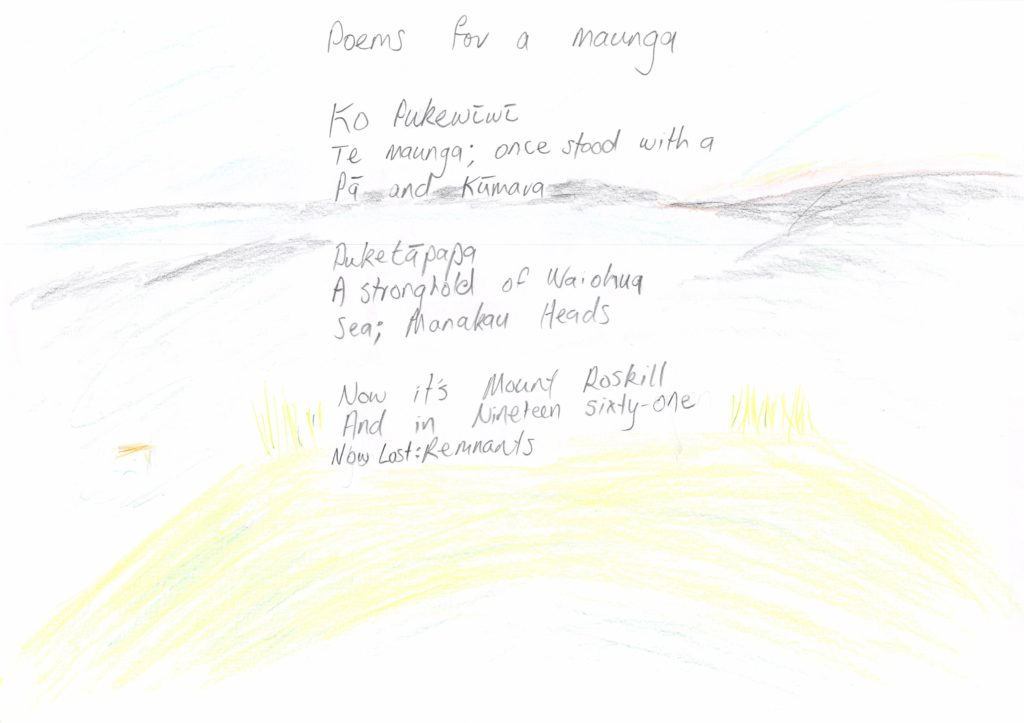 Poems for a maunga
Ko Pukewīwī
Te maunga; once stood with a
Pā and Kūmara
Puketāpapa
A stronghold of Waiohua
Sea; Manakau Heads
Now it's Mount Roskill
And in Nineteen sixty-one
Now Lost: Remnants